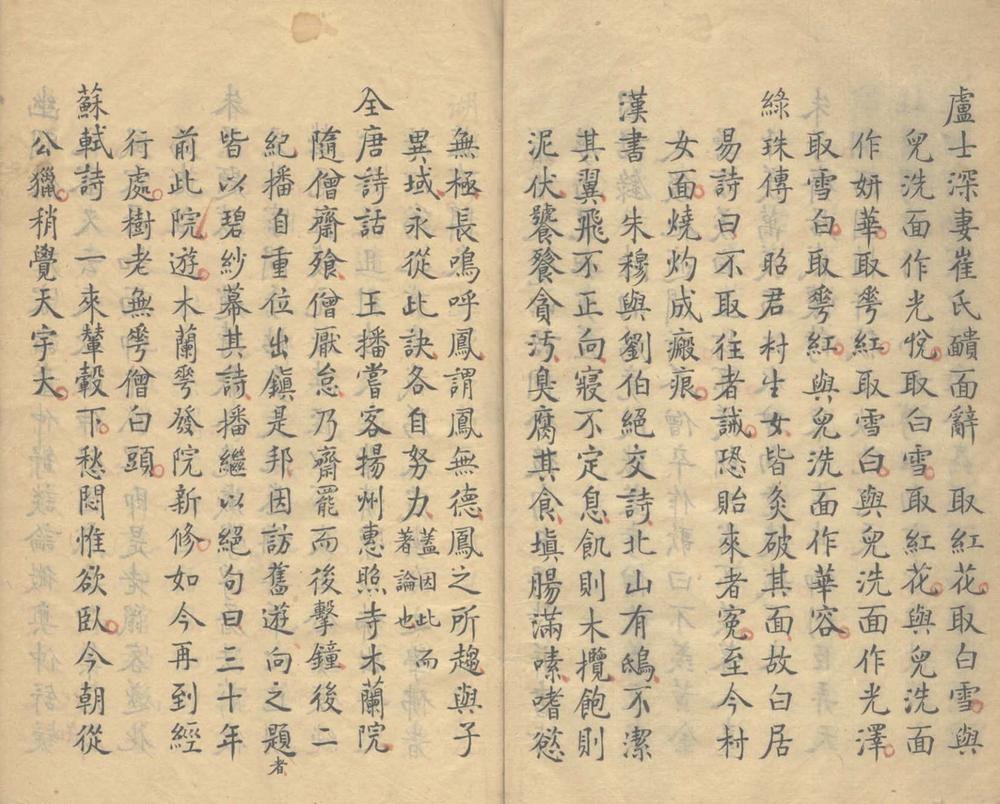 盧士深妻崔氏靧面辭　取紅花取白雪與
兒洗面作光悅取白雪取紅花與兒洗面
作妍華取雩紅取雪白與兒洗面作光澤
取雪白取雩紅與兒洗面作華容
綠珠傳昭君村生女皆灸破其面故白居
易詩曰不取往者誡恐貽來者冤至今村
女面燒灼成瘢痕
漢書朱穆與劉伯絕交詩北山有鴟不潔
其翼飛不正向寢不定息飢則木攬飽則
泥伏饕餮貪汚臭腐其食塡腸滿嗉嗜慾
無極長鳴呼鳳謂鳳無德鳳之所趨與子
異域永從此訣各自努力蓋因此而著論也
全唐詩話　王播嘗客揚州惠照寺木蘭院
隨僧齋飱僧厭怠乃齋罷而後擊鐘後二
紀播自重位出鎮是邦因訪舊遊向之題者
皆以碧紗幕其詩播繼以絕句曰三十年
前此院遊木蘭雩發院新修如今再到經
行處樹老無雩僧白頭
蘇軾詩　一來輦轂下愁悶惟欲臥今朝從
公獵稍覺天宇大